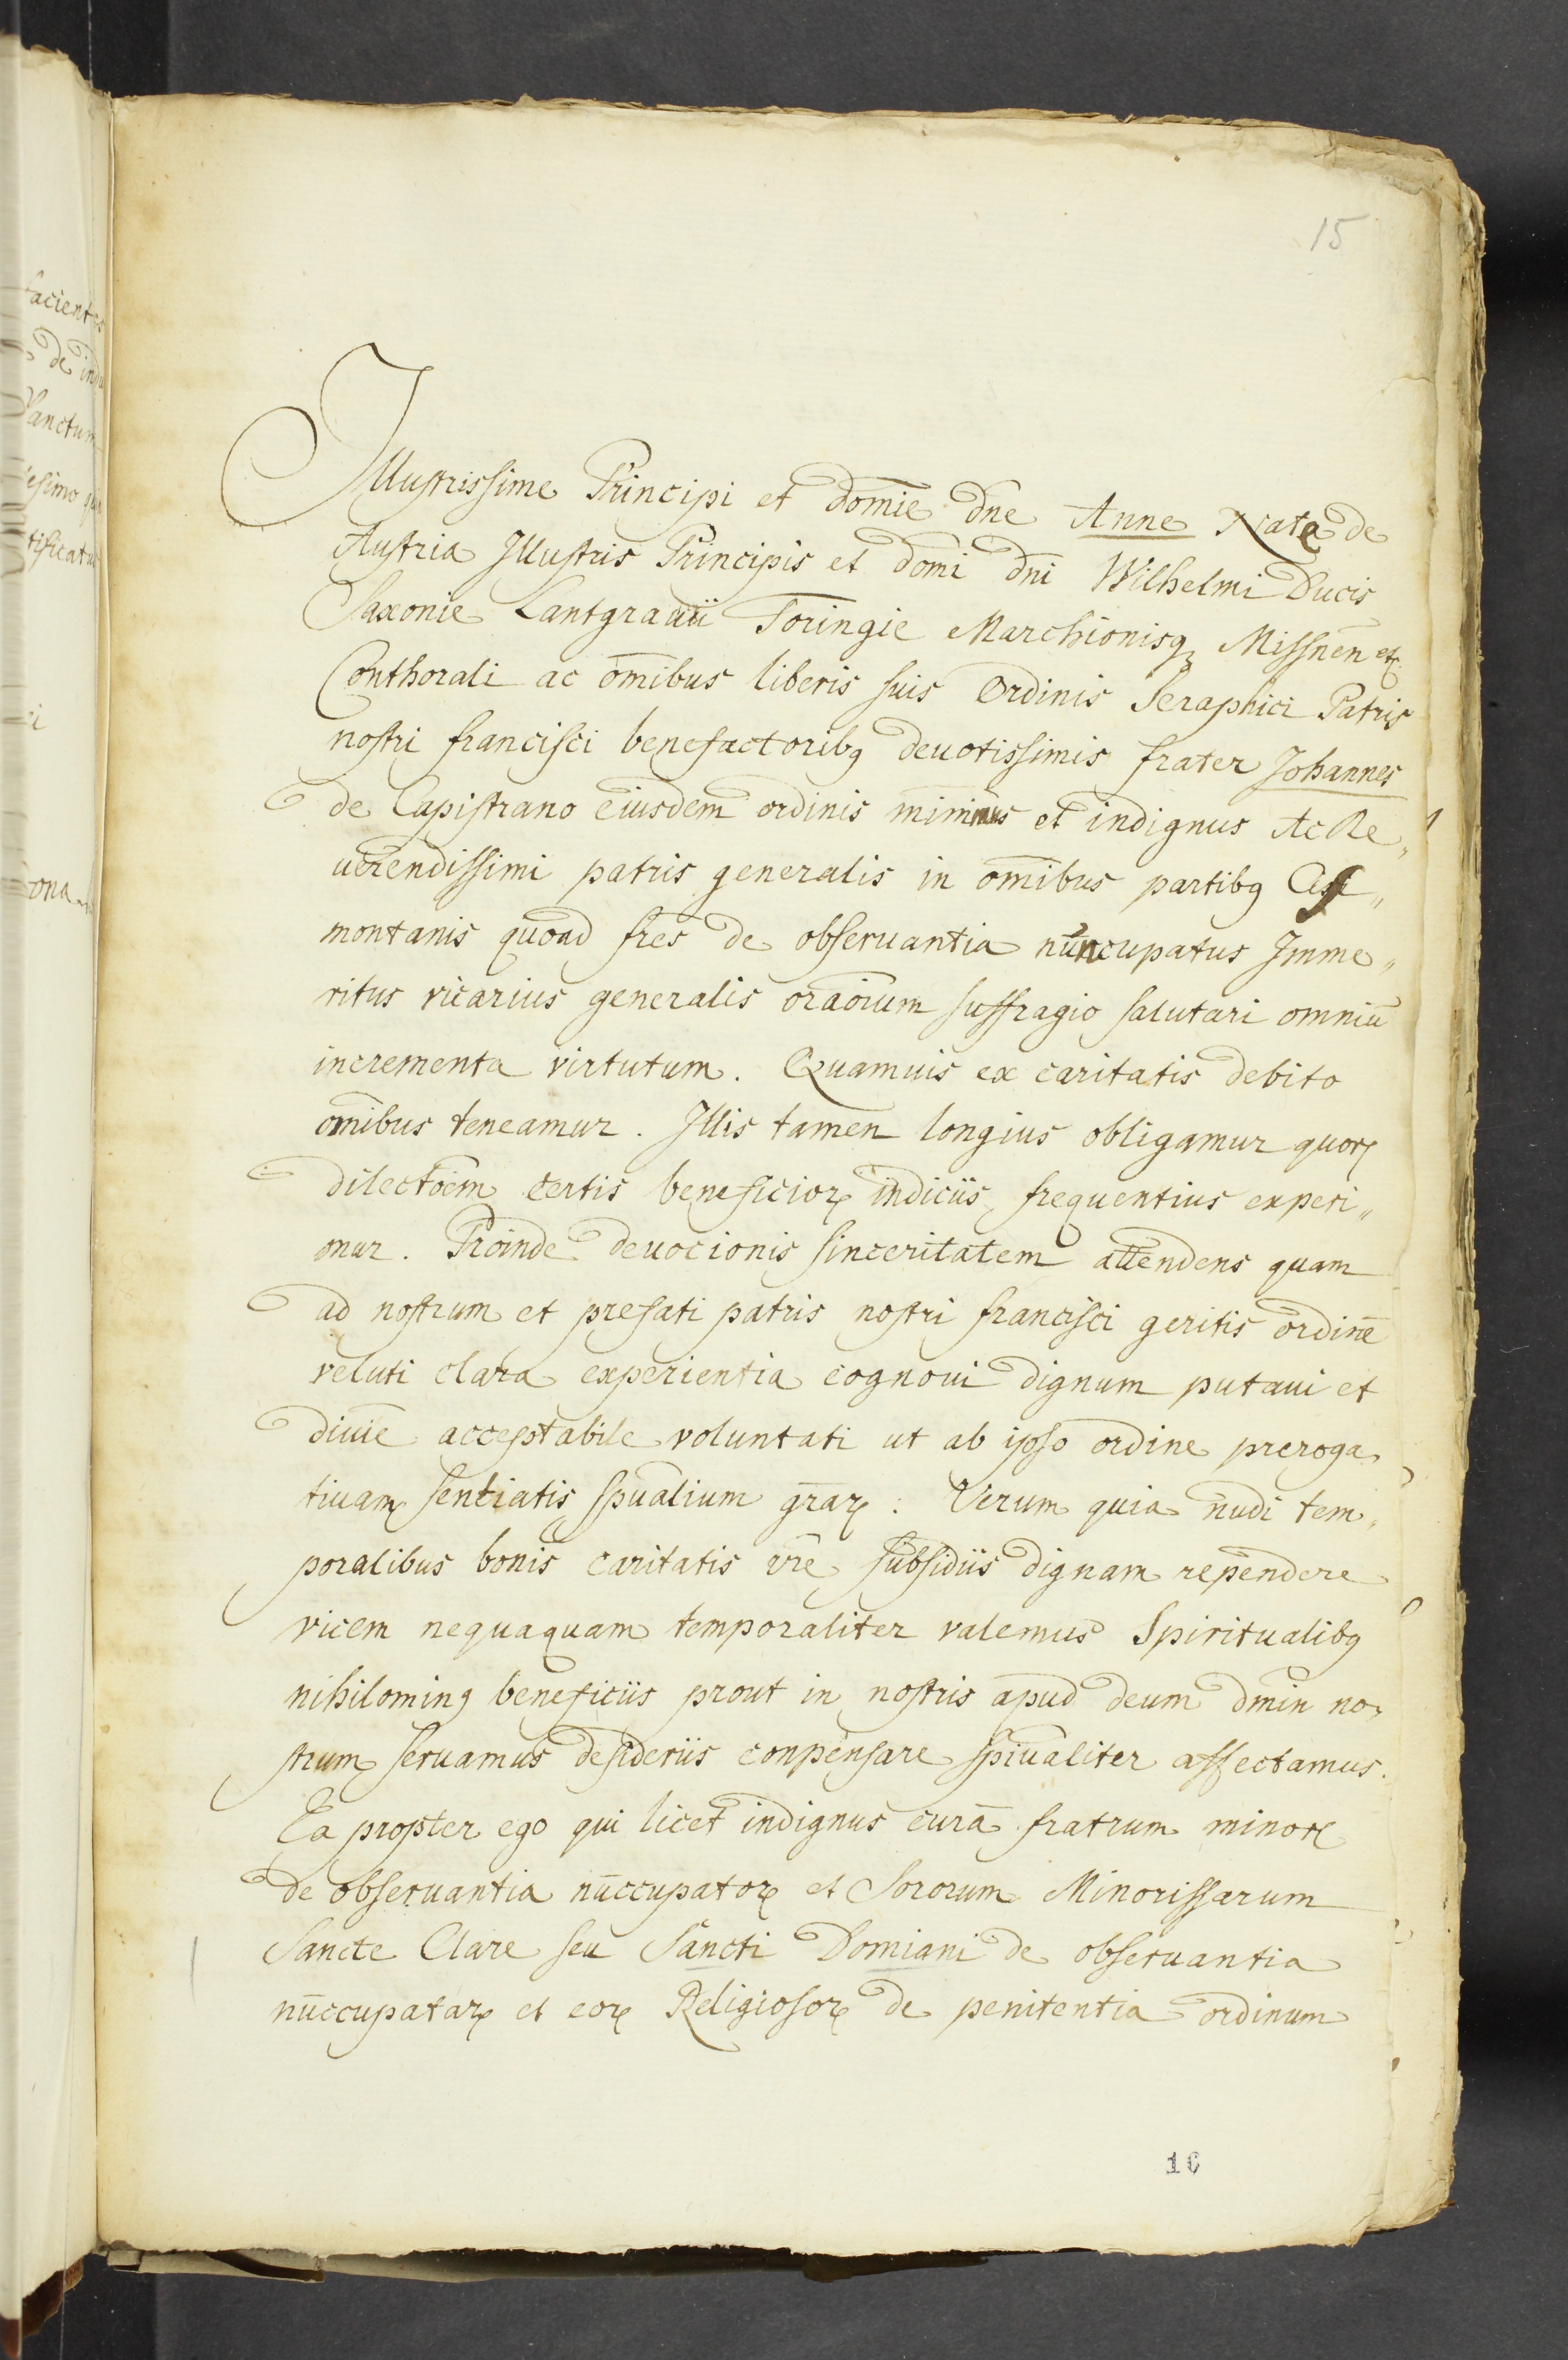 15
Illustrissime Principi et dom̄ie dn̄e Anne Nate de
Austria Illustris Principis et domī dnī Wilhelmi Ducis
Saxonie Lantgravii Toringie Marchionisqꝫ Missnen̄ etc.
Conthorali ac om̄ibus liberis suis Ordinis Seraphici Patris
nostri francisci benefactoribꝫ deuotissimis frater Johannes
de Capistrano eiusdem ordinis minimus et indignus Ac Re„
uerendissimi patris generalis in om̄ibus partibꝫ Cis„
montanis quoad fr̄es de obseruantia nuncupatus Imme„
ritus vicarius generalis orac̄oium suffragio salutari omniū
incrementa virtutum. Quamuis ex caritatis debito
om̄ibus teneamur. Illis tamen longius obligamur quoꝝ
dilectōem certis beneficioꝝ indiciis frequentius experi„
mur. Proinde deuocionis sinceritatem attendens quam
ad nostrum et prefati patris nostri francisci geritis ordinē
veluti clara experientia cognoui dignum putaui et
diuīe acceptabile voluntati ut ab ipso ordine preroga„
tiuam sentiatis sp̄ualium gr̄aꝝ: Verum quia nudi tem„
poralibus bonis caritatis vr̄e subsidiis dignam rependere
vicem nequaquam temporaliter valemus Spiritualibꝫ
nihilominꝫ beneficiis prout in nostris apud deum dm̄in no„
strum seruamus desideriis conpensare sp̄iualiter affectamus.
Ea propter ego qui licet indignus curā fratrum minoꝝ
de obseruantia nūccupatoꝝ et Sororum Minorissarum
Sancte Clare seu Sancti Domiani de obseruantia
nūccupataꝝ et eoꝝ Religiosoꝝ de penitentia ordinum
16
facientes
de indu
Sanctum
esimo
tificatus
ona